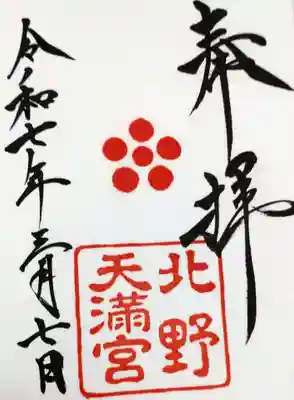 奉拝
北野
天満宮
令和七年三月七日